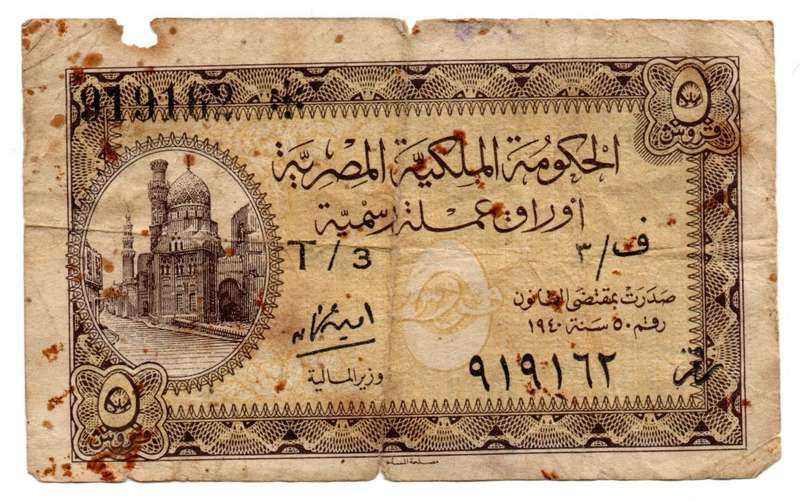 919162
٥
قروش
الحكومة الملكية المصرية
أوراق عملة رسمية
T/3
ف/٣
صدرت بمقتضى القانون
رقم ٥٠ سنة ١٩٤٠
وزير المالية
٩١٩١٦٢
٥
قروش